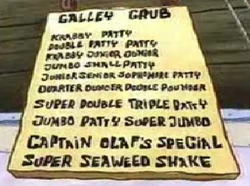 GALLEY GRUB
KRABBY PATTY
DOUBLE PATTY PATTY
KRABBY JUNIOR JUNIOR
JUMBO SMALL PATTY
JUNIOR SENIOR SUPREME PATTY
QUARTER OUNCER DOUBLE POUNDER
SUPER DOUBLE TRIPLE PATTY
JUMBO PATTY SUPER JUMBO
CAPTAIN OLAF'S SPECIAL
SUPER SEAWEED SHAKE